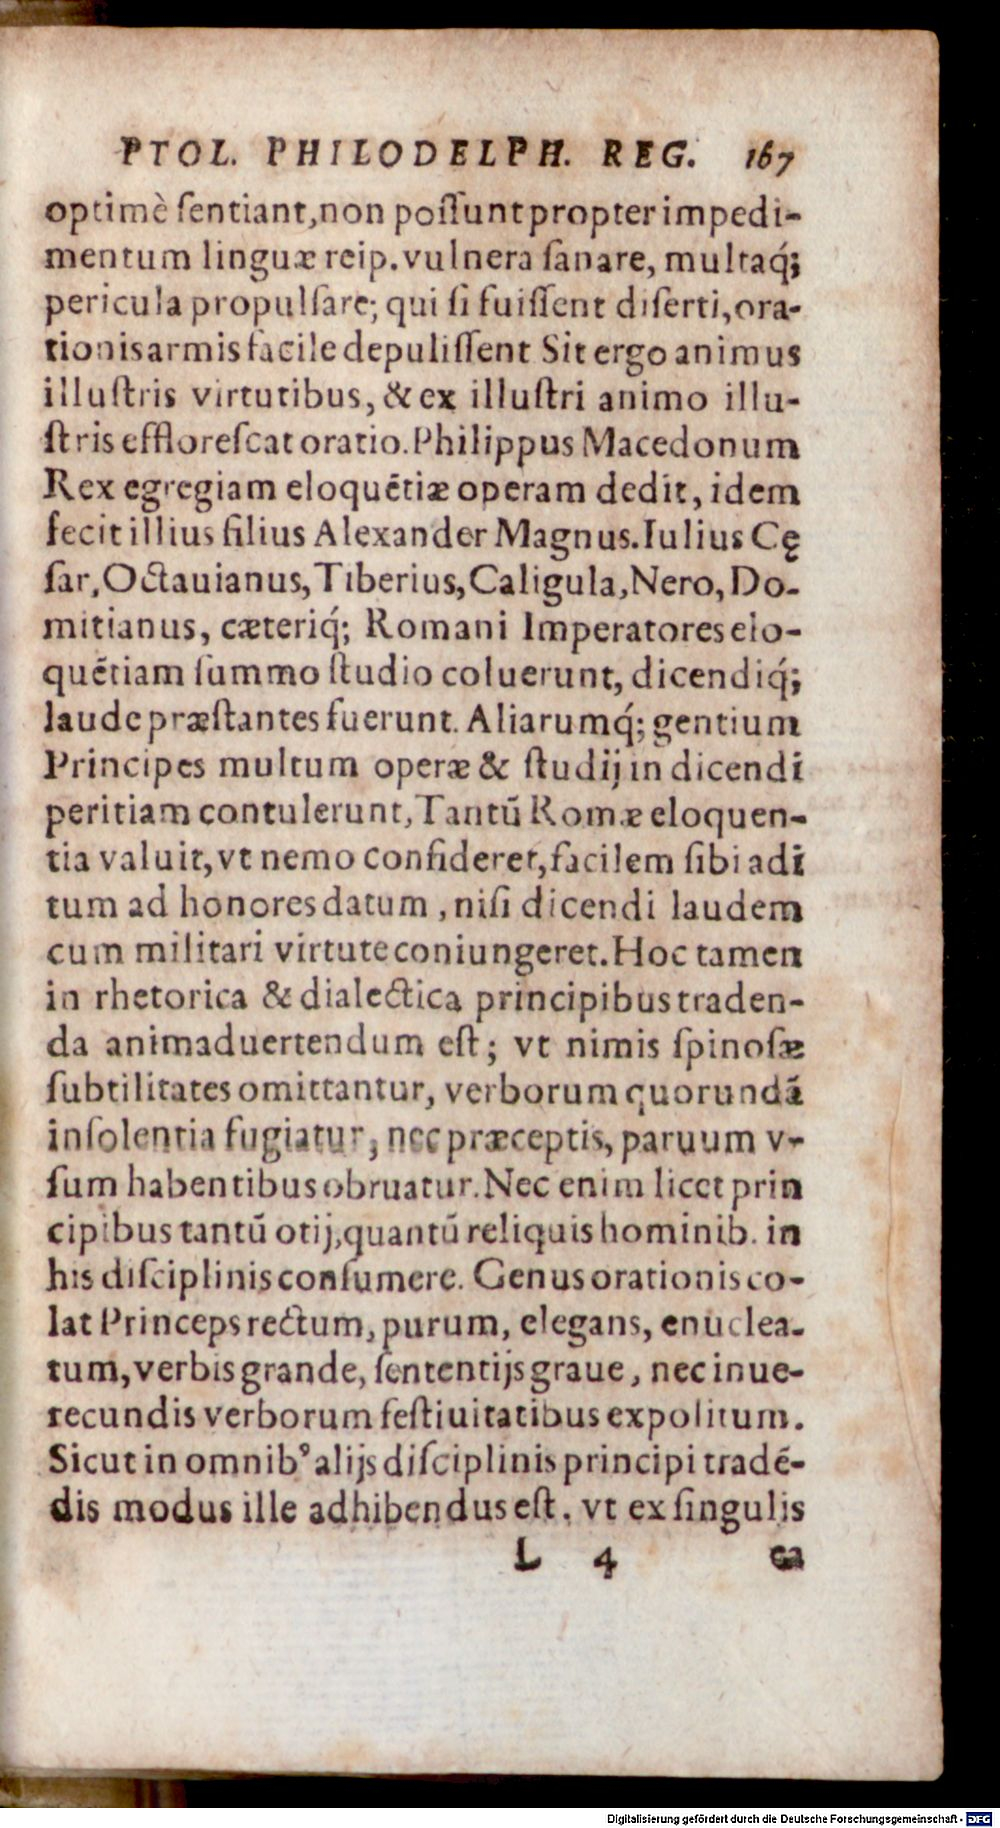 PTOL. PHILODELPH. REG. 167
optimè ſentiant, non poſſunt propter impedi-
mentum linguæ reip. vulnera ſanare, multaq́;
pericula propulſare; qui ſi fuiſſent diſerti, ora-
tionis armis facile depuliſſent Sit ergo animus
illuſtris virtutibus, & ex illuſtri animo illu-
ſtris effloreſcat oratio. Philippus Macedonum
Rex egregiam eloquẽtiæ operam dedit, idem
fecit illius filius Alexander Magnus. Iulius Cę
ſar, Octauianus, Tiberius, Caligula, Nero, Do-
mitianus, cæteriq́; Romani Imperatores elo-
quẽtiam ſummo ſtudio coluerunt, dicendiq́;
laude præſtantes fuerunt. Aliarumq́; gentium
Principes multum operæ & ſtudij in dicendi
peritiam contulerunt, Tantũ Romæ eloquen-
tia valuit, vt nemo confideret, facilem ſibi adi
tum ad honores datum, niſi dicendi laudem
cum militari virtute coniungeret. Hoc tamen
in rhetorica & dialectica principibus traden-
da animaduertendum eſt; vt nimis ſpinoſæ
ſubtilitates omittantur, verborum quorundã
inſolentia fugiatur, nec præceptis, paruum v-
ſum habentibus obruatur. Nec enim licet prin
cipibus tantũ otij, quantũ reliquis hominib. in
his diſciplinis conſumere. Genus orationis co-
lat Princeps rectum, purum, elegans, enuclea-
tum, verbis grande, ſententijs graue, nec inue-
recundis verborum feſtiuitatibus expolitum.
Sicut in omnibꝰ alijs diſciplinis principi tradẽ-
dis modus ille adhibendus eſt. vt ex ſingulis
L 4 ea
Digitalisierung gefördert durch die Deutsche Forschungsgemeinschaft - DFG